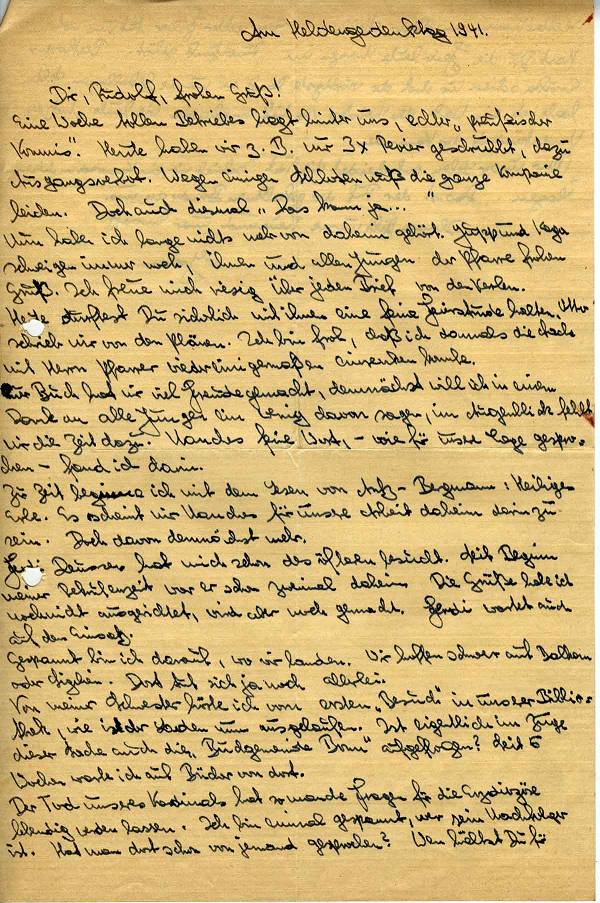 Am Heldengedenktag 1941.
Dir, Rudolf, frohen Gruß!
Eine Woche tollen Betriebes liegt hinter uns, echter „preußischer
Kommis“. Heute haben wir z. B. nur 3x Revier geschrubbt, dazu
Ausgangsverbot. Wegen einigen muß die ganze Kompanie
leiden. Doch auch diesmal „Das kann ja... “
Nun habe ich lange nichts mehr von daheim gehört. Jupp und
schweigen immer noch, ihnen und allen Jungen der Pfarre frohen
Gruß. Ich freue mich riesig über jeden Brief von den Kerlen.
Heute durftest Du sicherlich mit ihnen eine feine Feierstunde halten. Otto
schrieb mir von den Plänen. Ich bin froh, daß ich damals die Sache
mit Herrn Pfarrer wieder einigermaßen einrenken konnte.
Euer Buch hat mir viel Freude gemacht, demnächst will ich in einem
Dank an alle Jungen ein wenig davon sagen, im Augenblick fehlt
mir die Zeit dazu. Manches feine Wort, – wie für unsere Lage gespro-
chen – fand ich darin.
Zur Zeit beginne ich mit dem Lesen von Bergmann: Heiliges
Erbe. Es scheint mir Manches für unsere Arbeit daheim darin zu
sein. Doch davon demnächst mehr.
Ferdi hat mich schon des öfteren besucht. Seit Beginn
meiner Rekrutenzeit war er schon zweimal daheim. Die Grüße habe ich
noch nicht ausgerichtet, wird aber noch gemacht. Ferdi wartet auch
auf den Einsatz.
Gespannt bin ich darauf, wo wir landen. Wir hoffen schwer auf Balkan
oder Sizilien. Dort tut sich ja noch allerlei.
Von meiner Schwester hörte ich vom ersten „Besuch“ in unserer Biblio-
thek, wie ist der Schaden nun ausgelaufen. Ist eigentlich im Zuge
dieser Sache auch die „Buchgemeinde Bonn“ aufgeflogen? Seit 5
Wochen warte ich auf Bücher von dort.
Der Tod unseres Kardinals hat so manche Fragen für die Erzdiözöse
lebendig werden lassen. Ich bin einmal gespannt, wer sein Nachfolger
ist. Hat man dort schon von jemand gesprochen? Wen hältst Du für